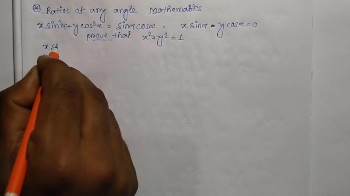 Ratios of any angle Mathematics
x sin³α + y cos³α = sinα cosα , x sinα - y cosα = 0
prove that x² + y² = 1